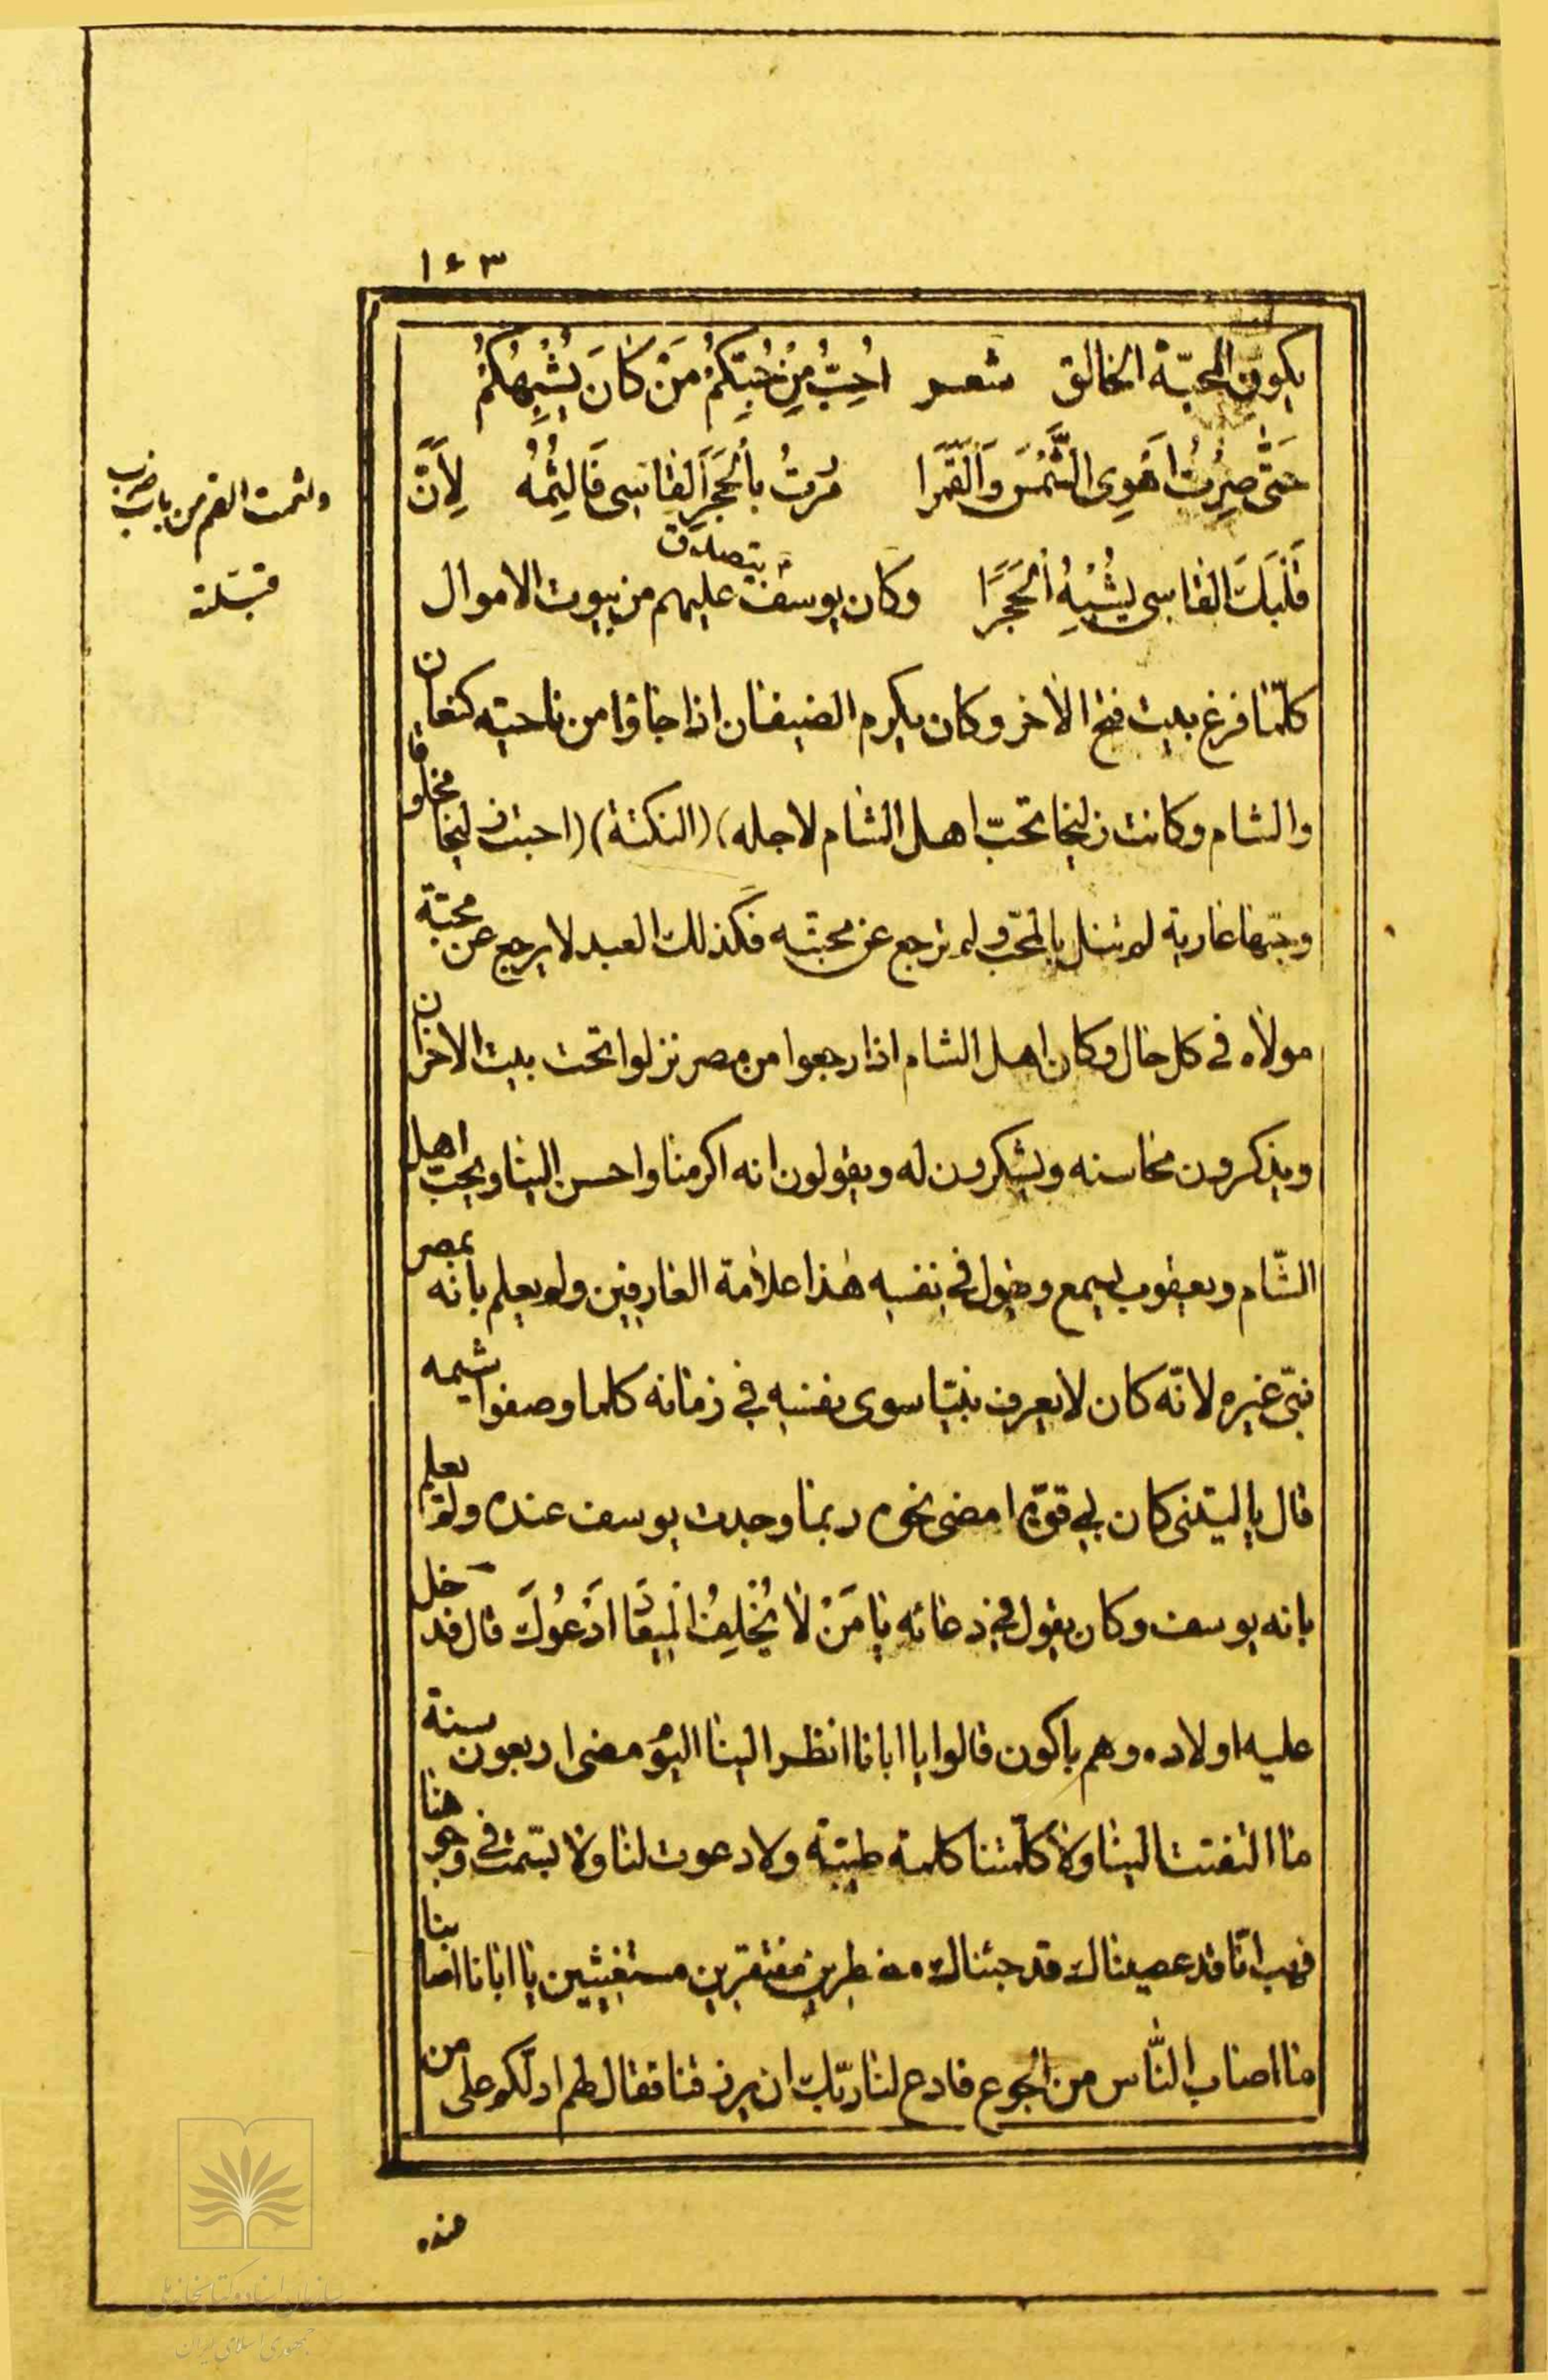 ١٤٣
يكون المحبّة الخالق شعر اُحِبُّ مِنْ حُبِّكُمْ مَنْ كَانَ يُشْبِهُكُمْ
حَتّى صِرْتُ اَهْوِى الشَّمْسَ وَالْقَمَرا مُرتُ بِالْحَجَرِ القاسى فَالِثمُهُ لِاَنَّ
قَلْبَكَ القاسى يُشْبِهُ الحَجَرَا وكان يوسف يتصدق عليهم من بيوت الاموال
كلّما فرغ بيت فتح الاخر وكان يكرم الضيفان اذا جاؤا من ناحية كنعان
والشام وكانت زليخا تحبّ اهل الشام لاجله) (النكتة) (احبت زليخا مخلوقا
وحبّها عارية لم تنل بالمحبّ ولم ترجع عن محبته فكذلك العبد لا يرجع عن محبّة
مولاه فى كل حال وكان اهل الشام اذا رجعوا من مصر نزلوا تحت بيت الاحزان
ويذكرون محاسنه ويشكرون له ويقولون انه اكرمنا واحسن الينا ويحبّ اهل
الشّام ويعقوب يسمع ويقول فى نفسه هٰذا علامة العارفين ولو يعلم بانه بمصر
نبىّ غيره لانّه كان لا يعرف نبيّا سوى نفسه فى زمانه كلما وصفوا شيمه
قال يا ليتنى كان لى قوّة امضى نحوه ربما وجدت يوسف عنده ولو يعلم
بانه يوسف وكان يقول فى دعائه يَا مَنْ لَا يُخْلِفُ الْمِيعَادَ اَدْعُوكَ قال فدخل
عليه اولاده وهم باكون قالوا يا ابانا انظر الينا اليوم مضى اربعون سنة
ما التفتت الينا ولا كلّمتنا كلمة طيبة ولا دعوت لنا ولا تبسّمت فى وجوهنا
فهب انّا قد عصيناك قد جئناك مضطرين مفتقرين مستغيثين يا ابانا اصابنا
ما اصاب النّاس من الجوع فادع لنا ربّك ان يرزقنا فقال لهم ادلّكم على من
عنده
ولثمت الفم من باب ضرب
قبّلته
سازمان اسناد و کتابخانه ملی
جمهوری اسلامی ایران